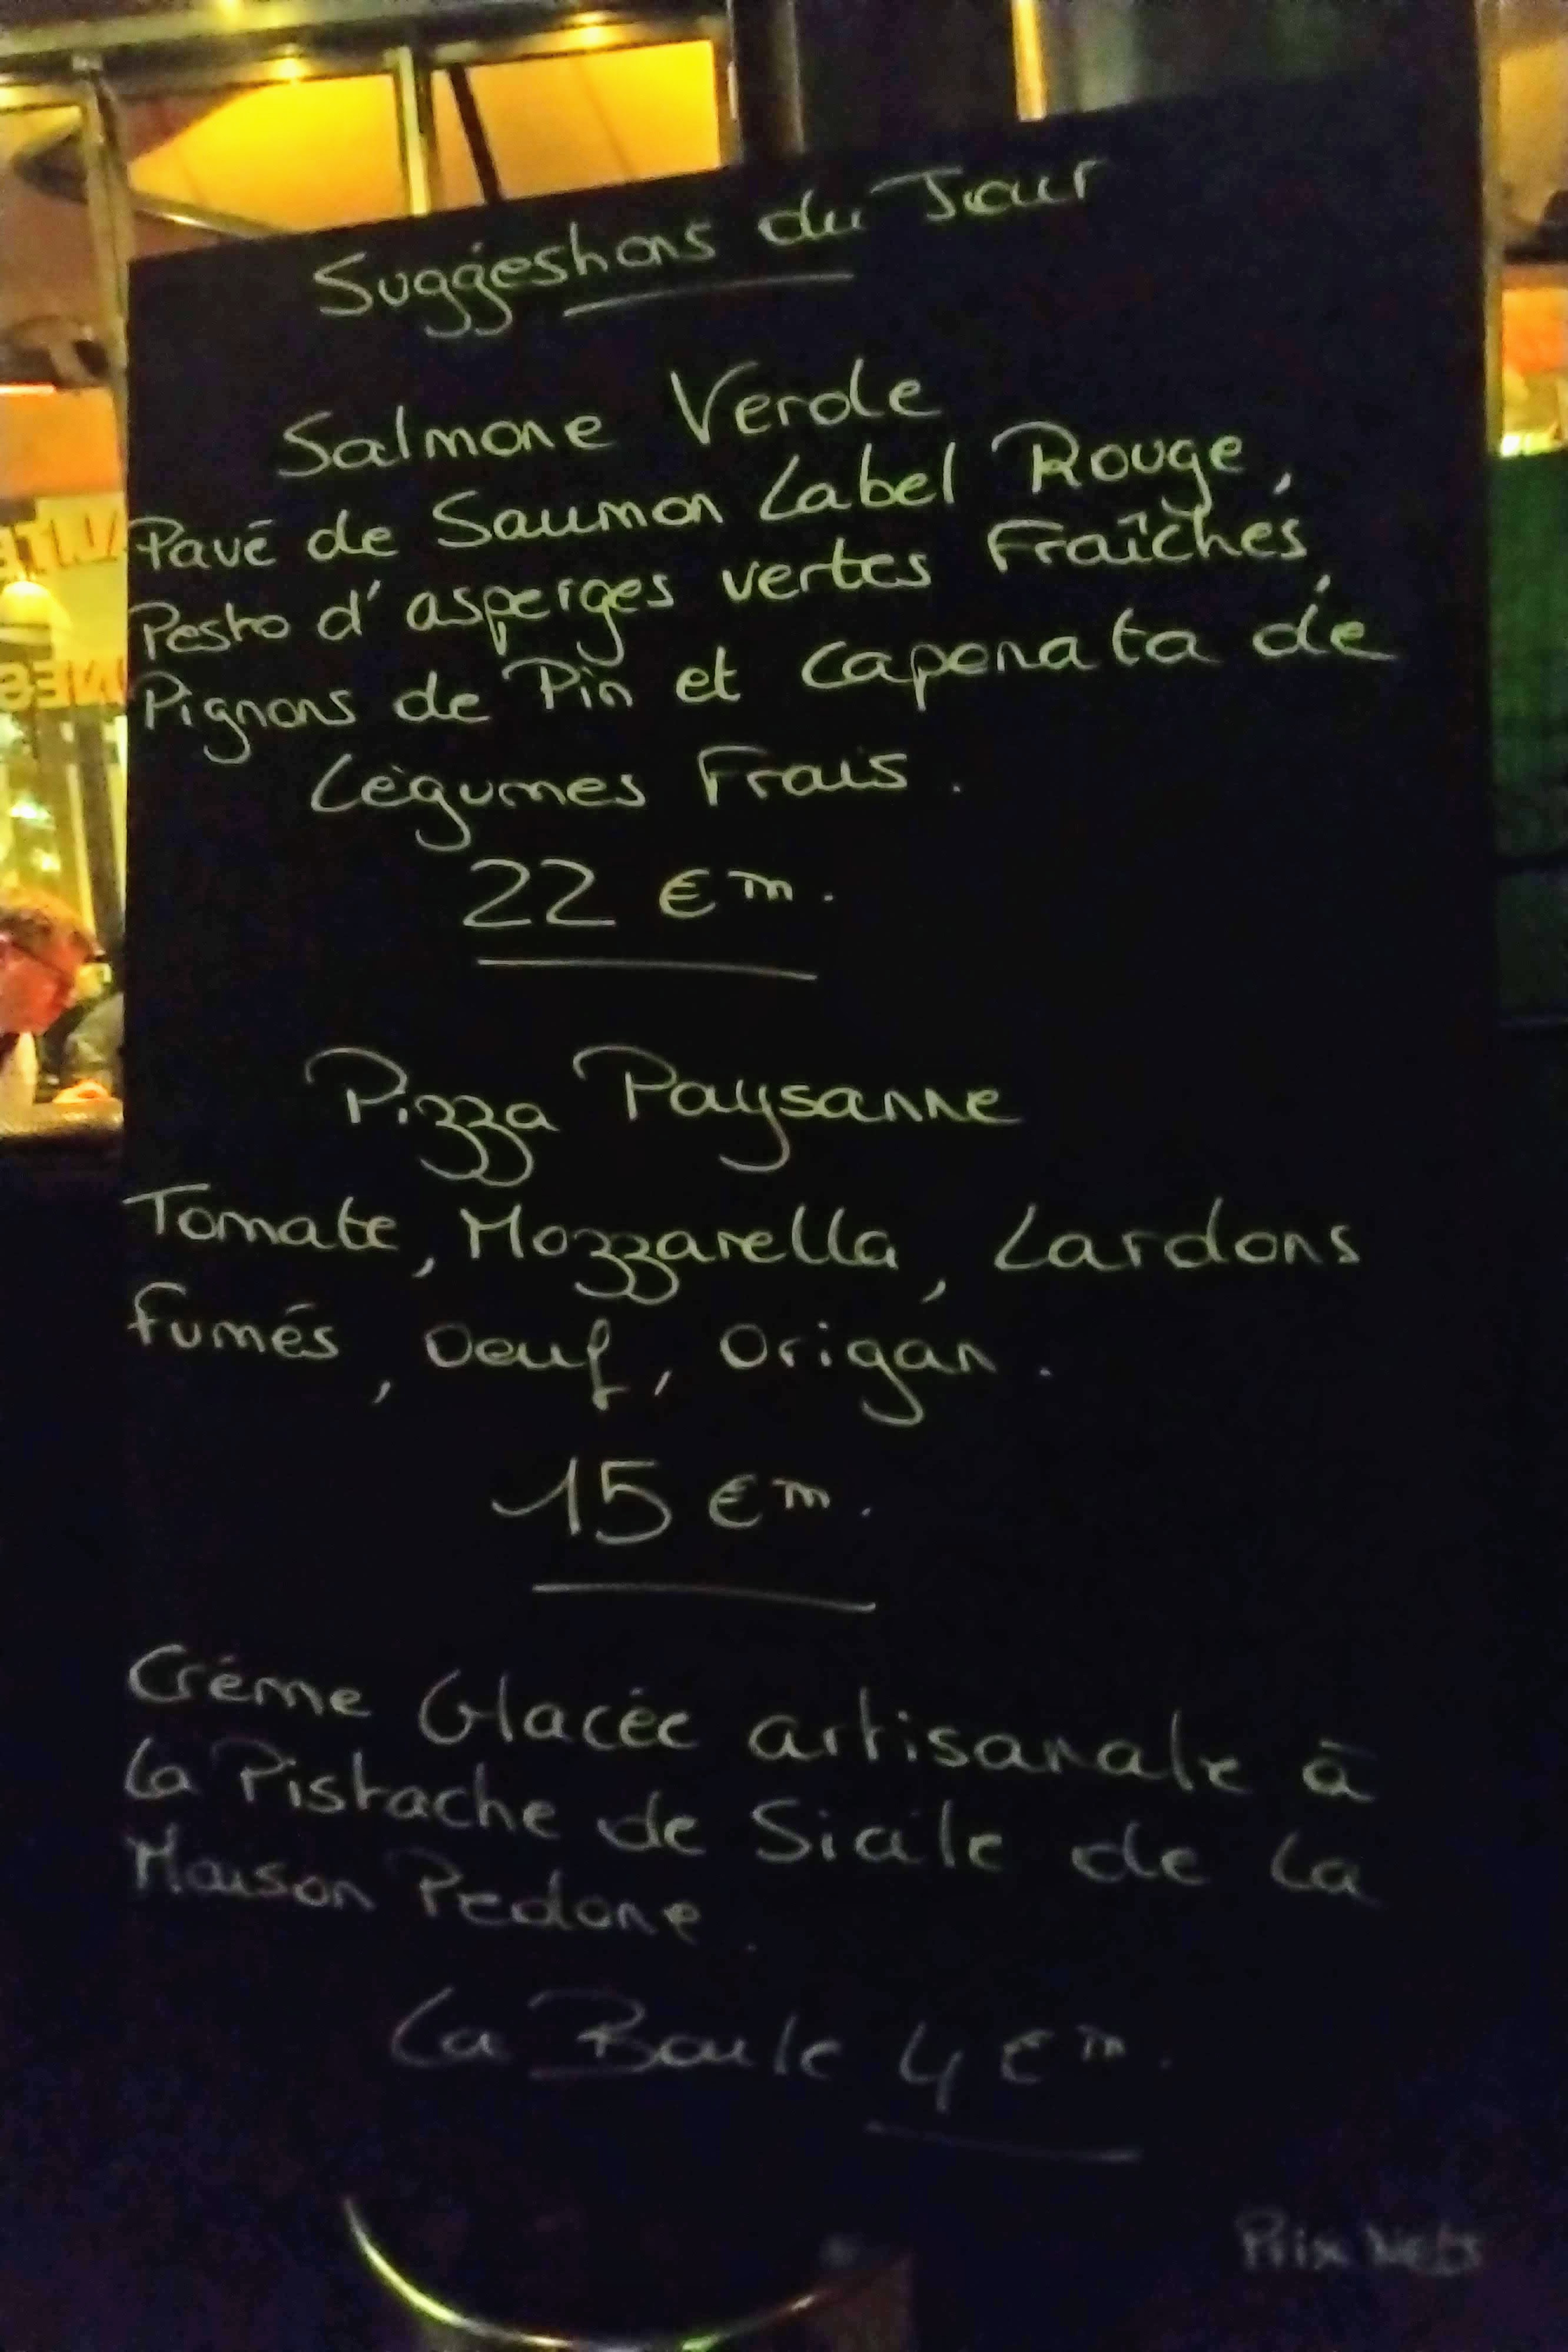 Suggestions du Jour
Salmone Verde
Pavé de Saumon Label Rouge,
Pesto d'asperges vertes Fraîches,
Pignons de Pin et caponata de
Légumes Frais.
22 €ᵐ.
Pizza Paysanne
Tomate, Mozzarella, Lardons
fumés, Oeuf, Origan.
15 €ᵐ.
Crème Glacée artisanale à
la Pistache de Sicile de la
Maison Pedone.
La Boule 4 €ᵐ.
Prix Nets